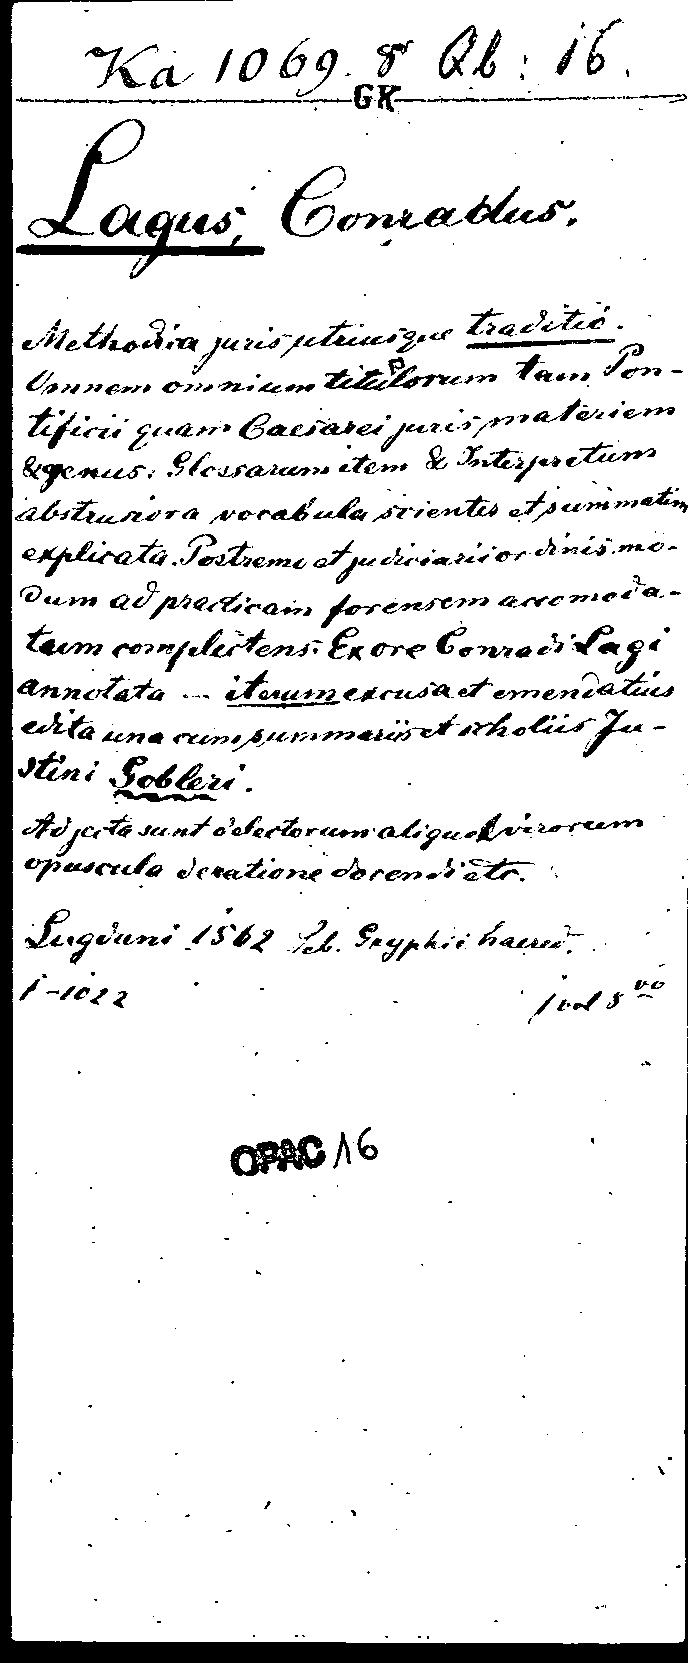 Ka 1069. 8° Rb: 16.
GK
Lagus, Conradus.
Methodica juris utriusque traditio.
Omnem omnium titulorum tam Pon-
tificii quam Caesarei juris materiem
& genus: Glossarum item & Interpretum
abstrusiora vocabula scienter et summatim
explicata. Postremo et judiciarii ordinis mo-
dum ad practicam forensem accomoda-
tum complectens. Ex ore Conradi Lagi
annotata --- iterum excusa et emendatius
edita una cum summariis et scholiis Ju-
stini Gobleri.
Adjecta sunt delectorum aliquot virorum
opuscula de ratione docendi etc.
Lugduni 1562 Seb. Gryphii haered.
I-1022
1 vol 8vo
OPAC 16